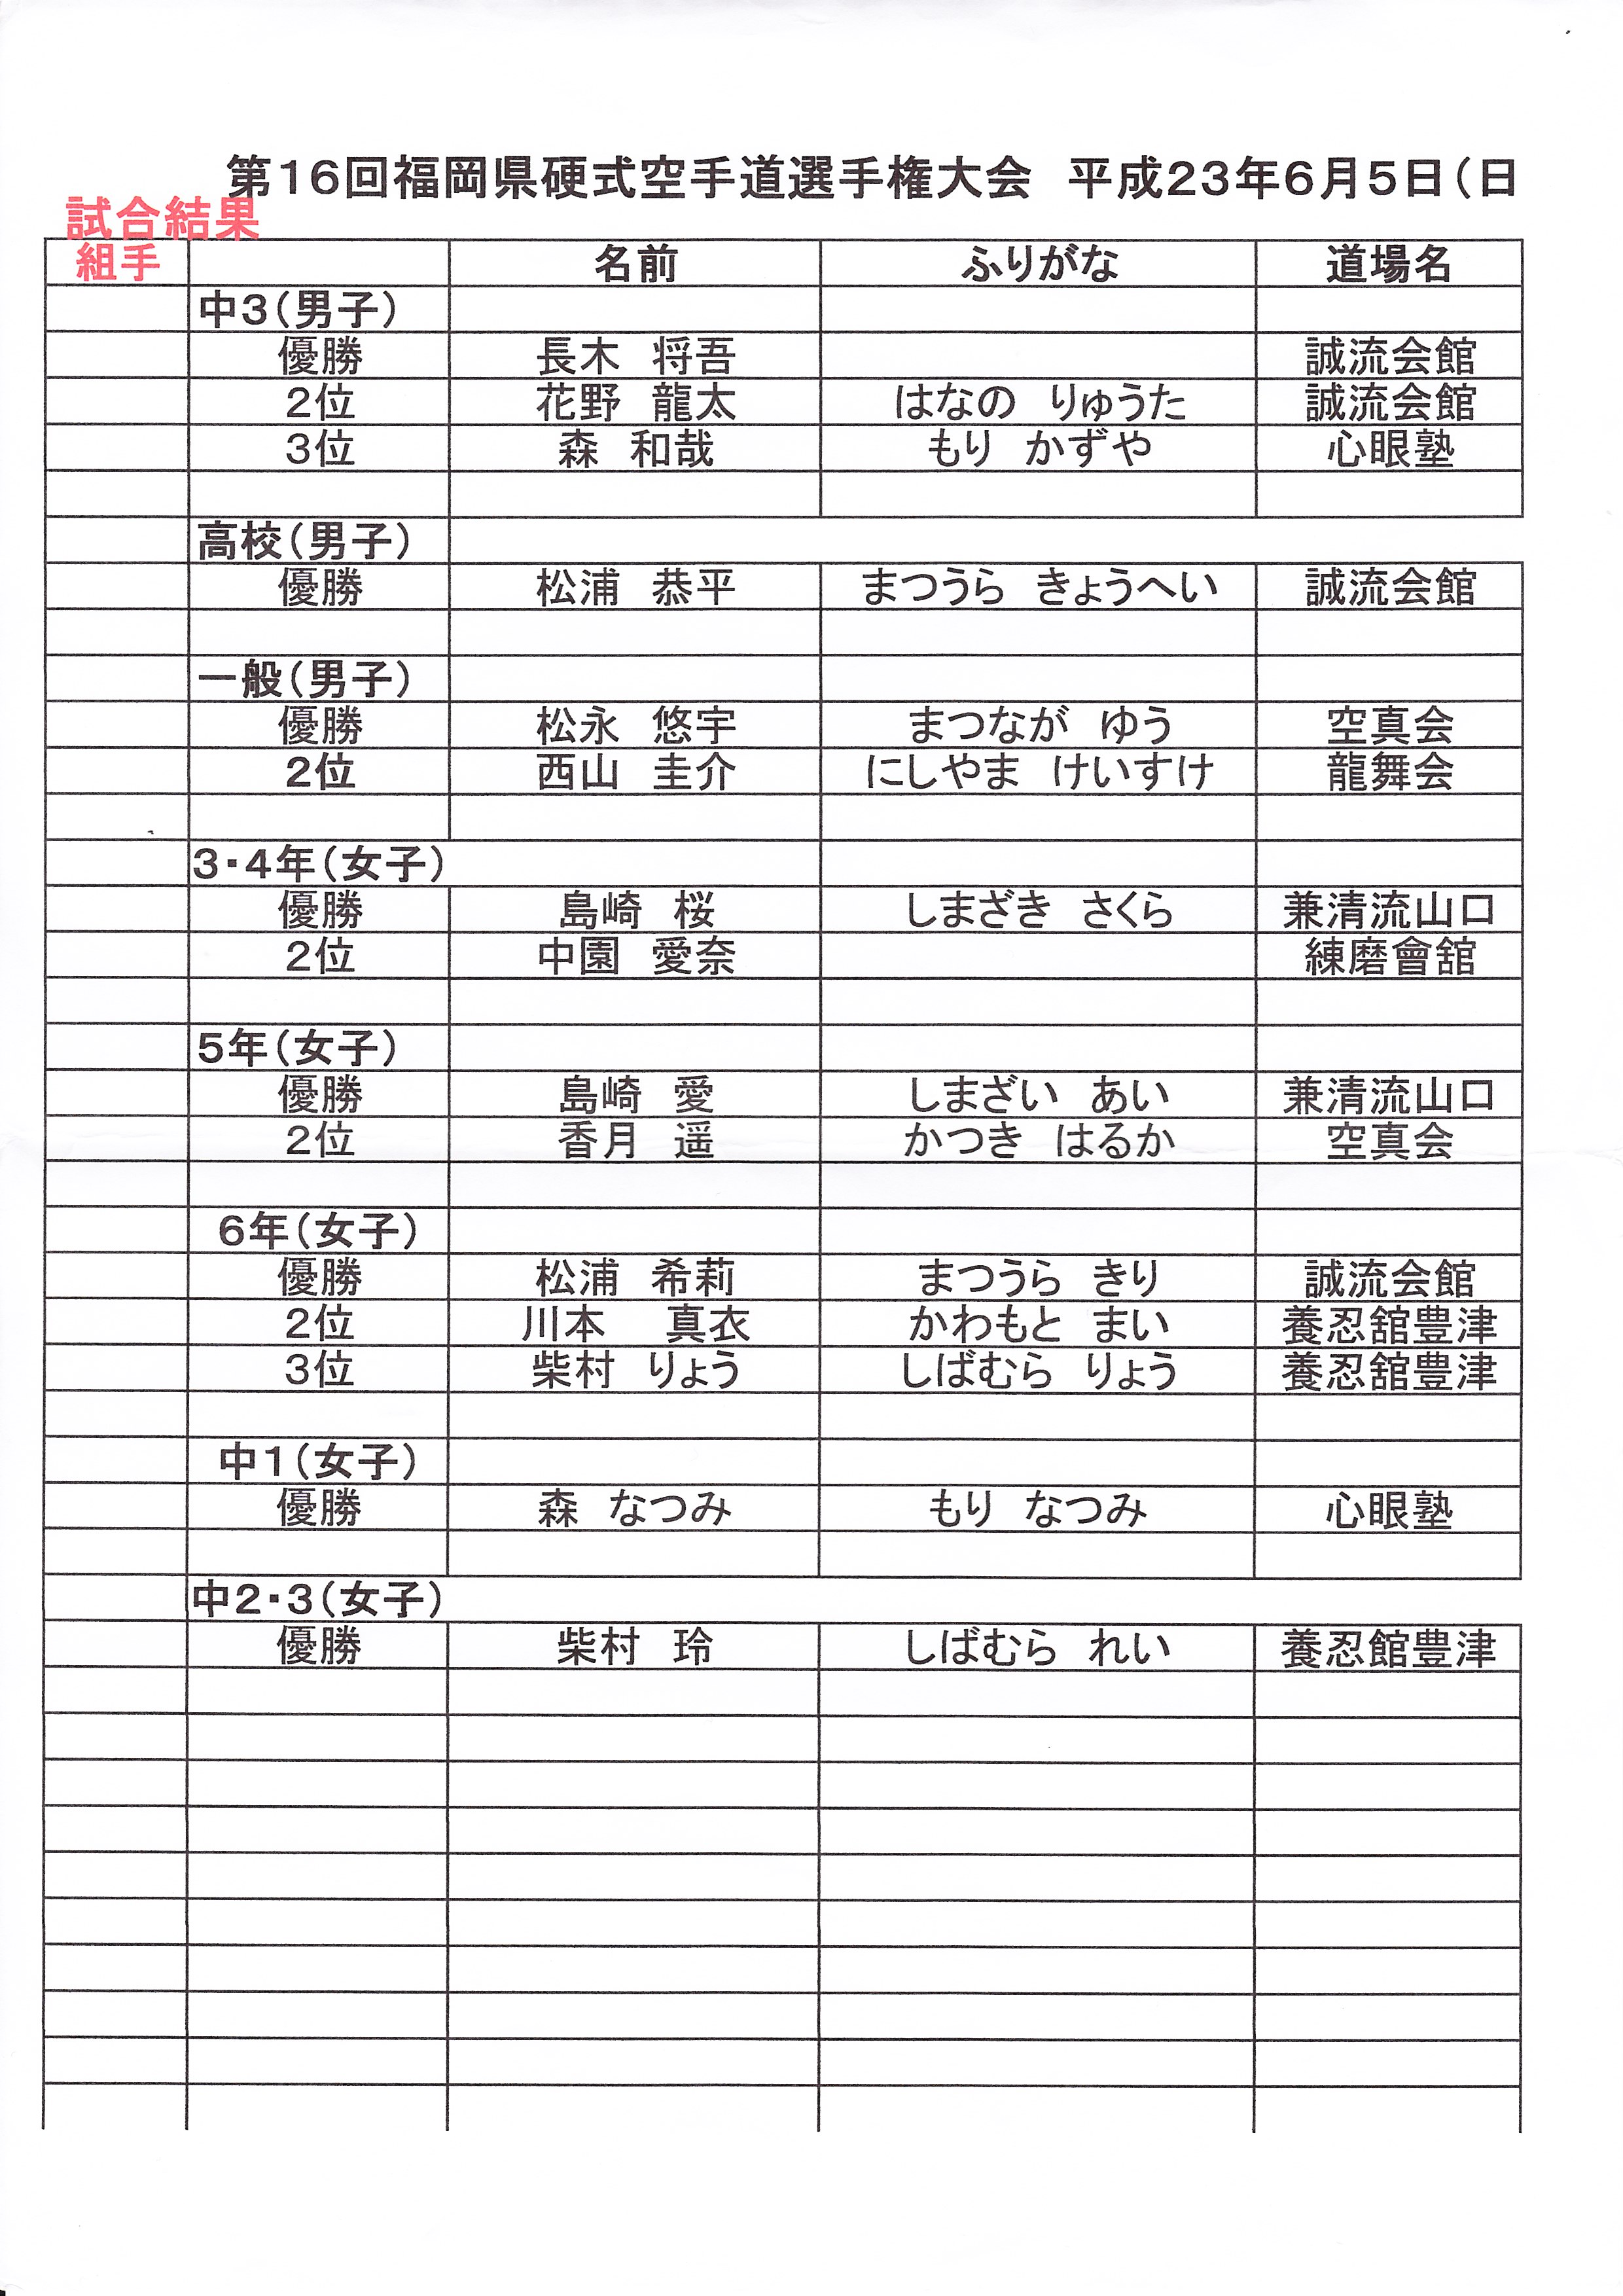 第16回福岡県硬式空手道選手権大会　平成23年6月5日(日
試合結果
組手　名前　ふりがな　道場名
中3(男子)
優勝　長木　将吾　誠流会館
2位　花野　龍太　はなの　りゅうた　誠流会館
3位　森　和哉　もり　かずや　心眼塾
高校(男子)
優勝　松浦　恭平　まつうら　きょうへい　誠流会館
一般(男子)
優勝　松永　悠宇　まつなが　ゆう　空真会
2位　西山　圭介　にしやま　けいすけ　龍舞会
3・4年(女子)
優勝　島崎　桜　しまざき　さくら　兼清流山口
2位　中園　愛奈　練磨會舘
5年(女子)
優勝　島崎　愛　しまざい　あい　兼清流山口
2位　香月　遥　かつき　はるか　空真会
6年(女子)
優勝　松浦　希莉　まつうら　きり　誠流会館
2位　川本　真衣　かわもと　まい　養忍舘豊津
3位　柴村　りょう　しばむら　りょう　養忍舘豊津
中1(女子)
優勝　森　なつみ　もり　なつみ　心眼塾
中2・3(女子)
優勝　柴村　玲　しばむら　れい　養忍館豊津